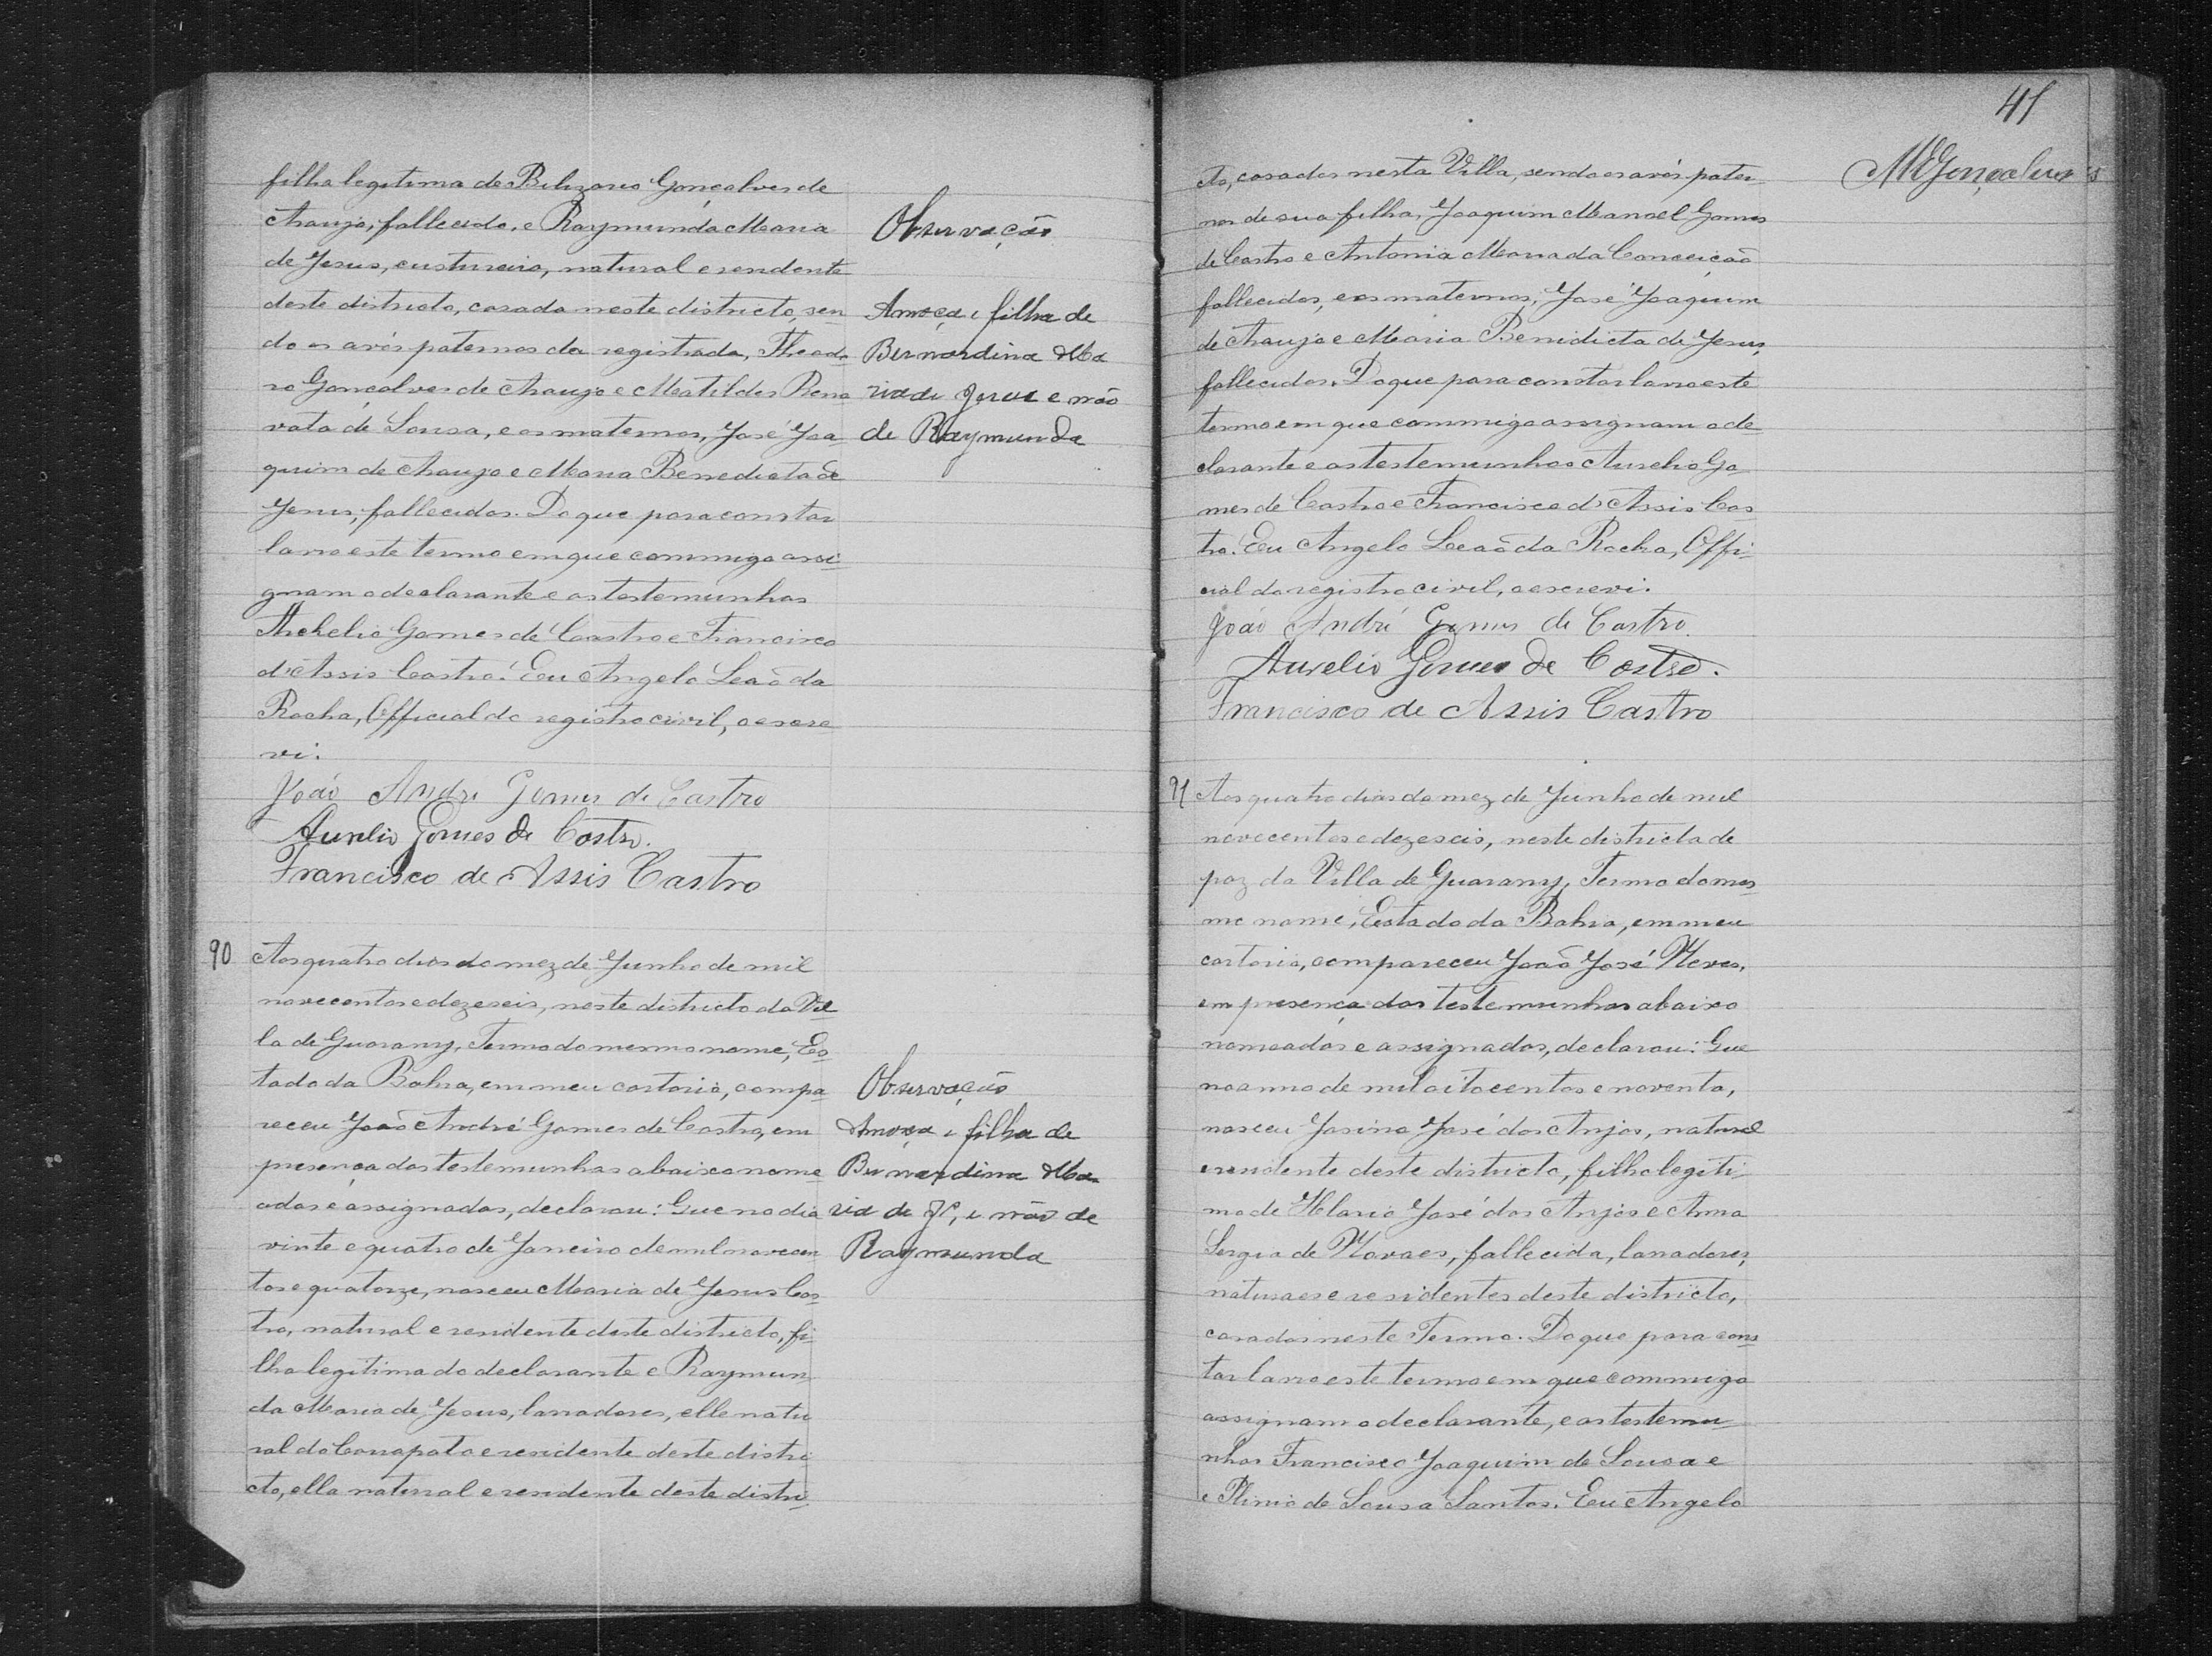 filha legitima de Belizario Gonçalves de
Araujo, fallecido, e Raymunda Maria
de Jesus, custureira, natural e residente
deste districto, casada neste districto, sen-
do os avós paternos da registrada, Theodo
ro Gonçalves de Araujo e Matildes Reno
vata de Sousa, e os maternos, José Joa-
quim de Araujo e Maria Benedicta de
Jesus, fallecidos. Do que para constar
lavro este termo em que commigo assi-
gnam o declarante e as testemunhas
Aurhelio Gomes de Castro e Francisco
d'Assis Castro. Eu Angelo Leão da
Rocha, Official do registro civil, o escre
vi.
João André Gomes de Castro
Aurelio Gomes de Castro.
Francisco de Assis Castro
Observação
A moça é filha de
Bernardina Ma
ria de Jesus e não
de Raymunda
90 Aos quatro dias do mez de Junho de mil
novecentos e dezeseis, neste districto da Vil
la de Guarany, Termo do mesmo nome, Es-
tado da Bahia, em meu cartorio, compa-
receu João André Gomes de Castro, em
presença das testemunhas abaixo nome
adas e assignadas, declarou: Que no dia
vinte e quatro de Janeiro de mil novecen
tos e quatorze, nasceu Maria de Jesus Cas-
tro, natural e residente deste districto, fi-
lha legitima do declarante e Raymun-
da Maria de Jesus, lavradores, elle natu
ral do Conapato e residente deste distri-
cto, ella natural e residente deste distri-
Observação
A moça é filha de
Bernardina Ma-
ria de Js, e não de
Raymunda
41
MGonçalves
cto, casados nesta Villa, sendo os avós pater-
nos de sua filha, Joaquim Manoel Gomes
de Castro e Antonia Maria da Conceição
fallecidos, e os maternos, José Joaquim
de Araujo e Maria Benidicta de Jesus,
fallecidos. Do que para constar lavro este
termo em que commigo assignam o de
clarante e as testemunhas Aurelio Go
mes de Castro e Francisco d'Assis Cas
tro. Eu Angelo Leão da Rocha, Offi-
cial do registro civil, o escrevi.
João André Gomes de Castro.
Aurelio Gomes de Castro.
Francisco de Assis Castro
91 Aos quatro dias do mez de Junho de mil
novecentos e dezeseis, neste districto de
paz da Villa de Guarany, Termo do mes-
mo nome, Estado da Bahia, em meu
cartorio, compareceu João José Neves,
em presença das testemunhas abaixo
nomeadas e assignadas, declarou: Que
no anno de mil oitocentos e noventa,
nasceu Josino José dos Anjos, natural
e residente deste districto, filho legiti-
mo de Hilario José dos Anjos e Anna
Sergia de Novaes, fallecida, lavradores,
naturaes e residentes deste districto,
casados neste Termo. Do que para cons-
tar lavro este termo em que commigo
assignam o declarante, e as testemu-
nhas Francisco Joaquim de Sousa e
e Plinio de Sousa Santos. Eu Angelo